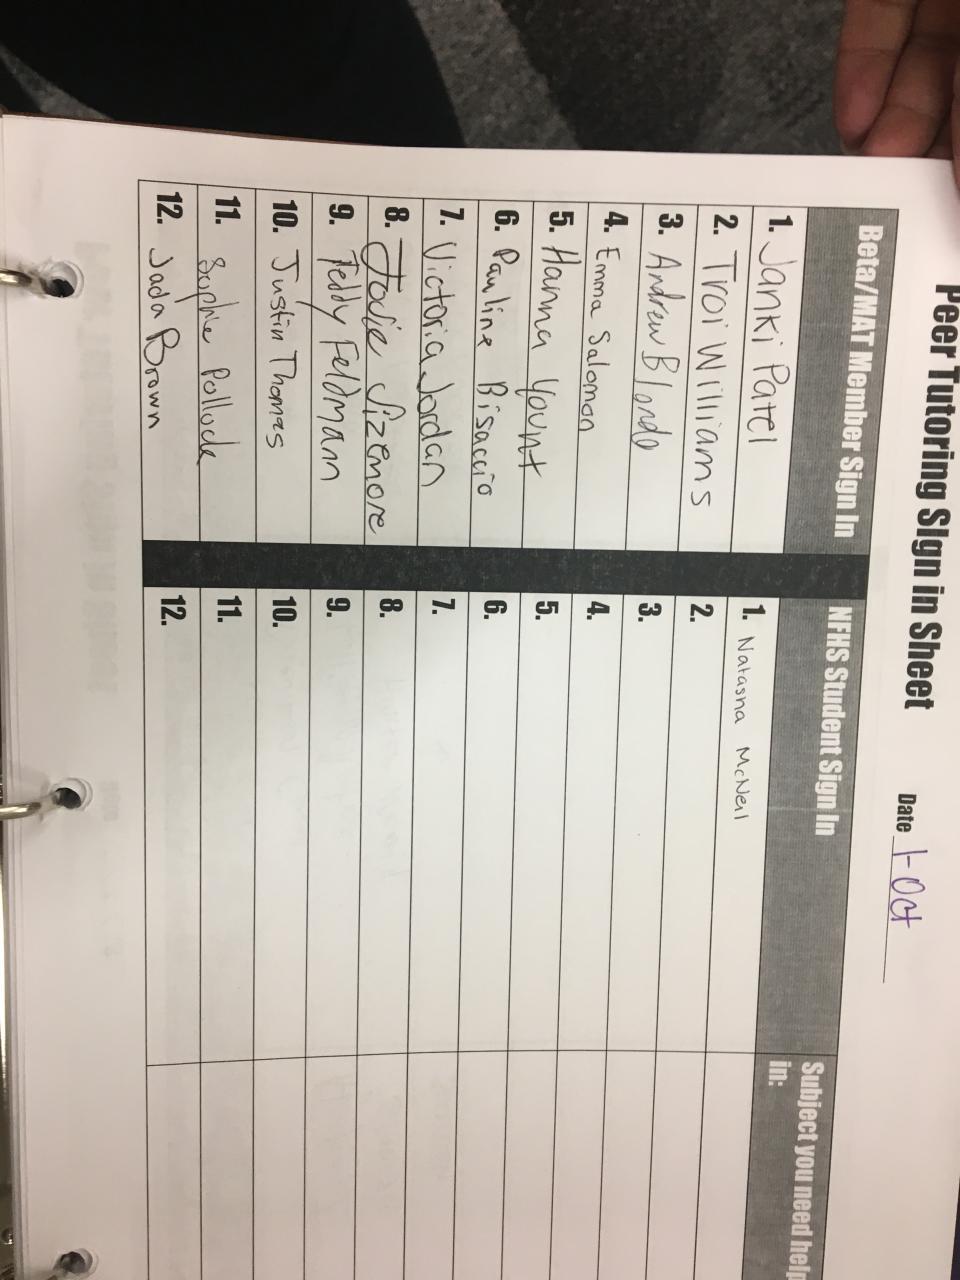 Peer Tutoring Sign in Sheet Date 1-Oct
Beta/MAT Member Sign In NFHS Student Sign In Subject you need help in:
1. Janki Patel 1. Natasha McNeil
2. Troi Williams 2.
3. Andrew Blondo 3.
4. Emma Salomon 4.
5. Hanna Yount 5.
6. Pauline Bisaccio 6.
7. Victoria Jordan 7.
8. Jodie Sizemore 8.
9. Teddy Feldmann 9.
10. Justin Thomas 10.
11. Sophie Pollock 11.
12. Jada Brown 12.